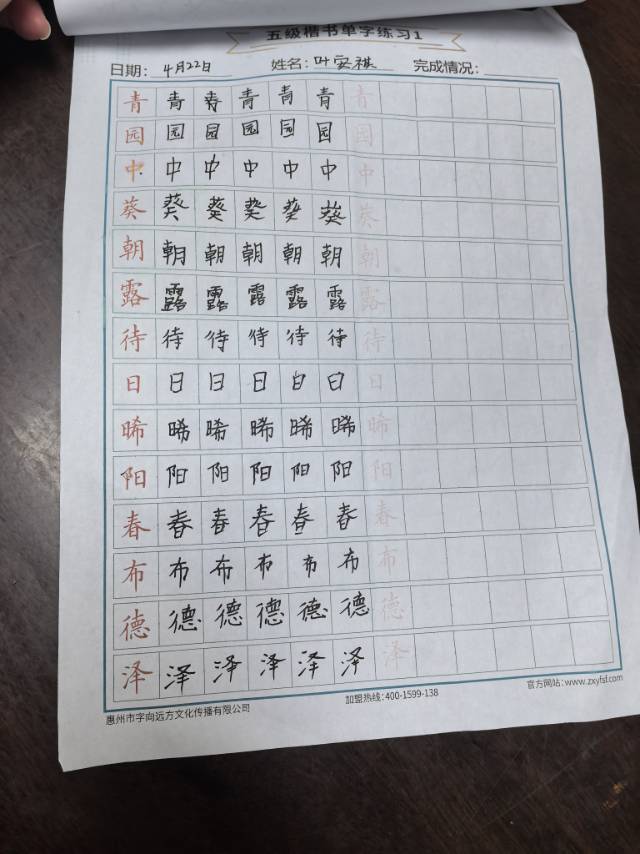 五级楷书单字练习1
日期：4月22日 姓名：叶安祺 完成情况：
青 青 青 青 青 青 青
园 园 园 园 园 园 园
中 中 中 中 中 中 中
葵 葵 葵 葵 葵 葵 葵
朝 朝 朝 朝 朝 朝 朝
露 露 露 露 露 露 露
待 待 待 待 待 待 待
日 日 日 日 日 日 日
晞 晞 晞 晞 晞 晞 晞
阳 阳 阳 阳 阳 阳 阳
春 春 春 春 春 春 春
布 布 布 布 布 布 布
德 德 德 德 德 德 德
泽 泽 泽 泽 泽 泽 泽
惠州市字向远方文化传播有限公司 加盟热线：400-1599-138 官方网站：www.zxyfsf.com